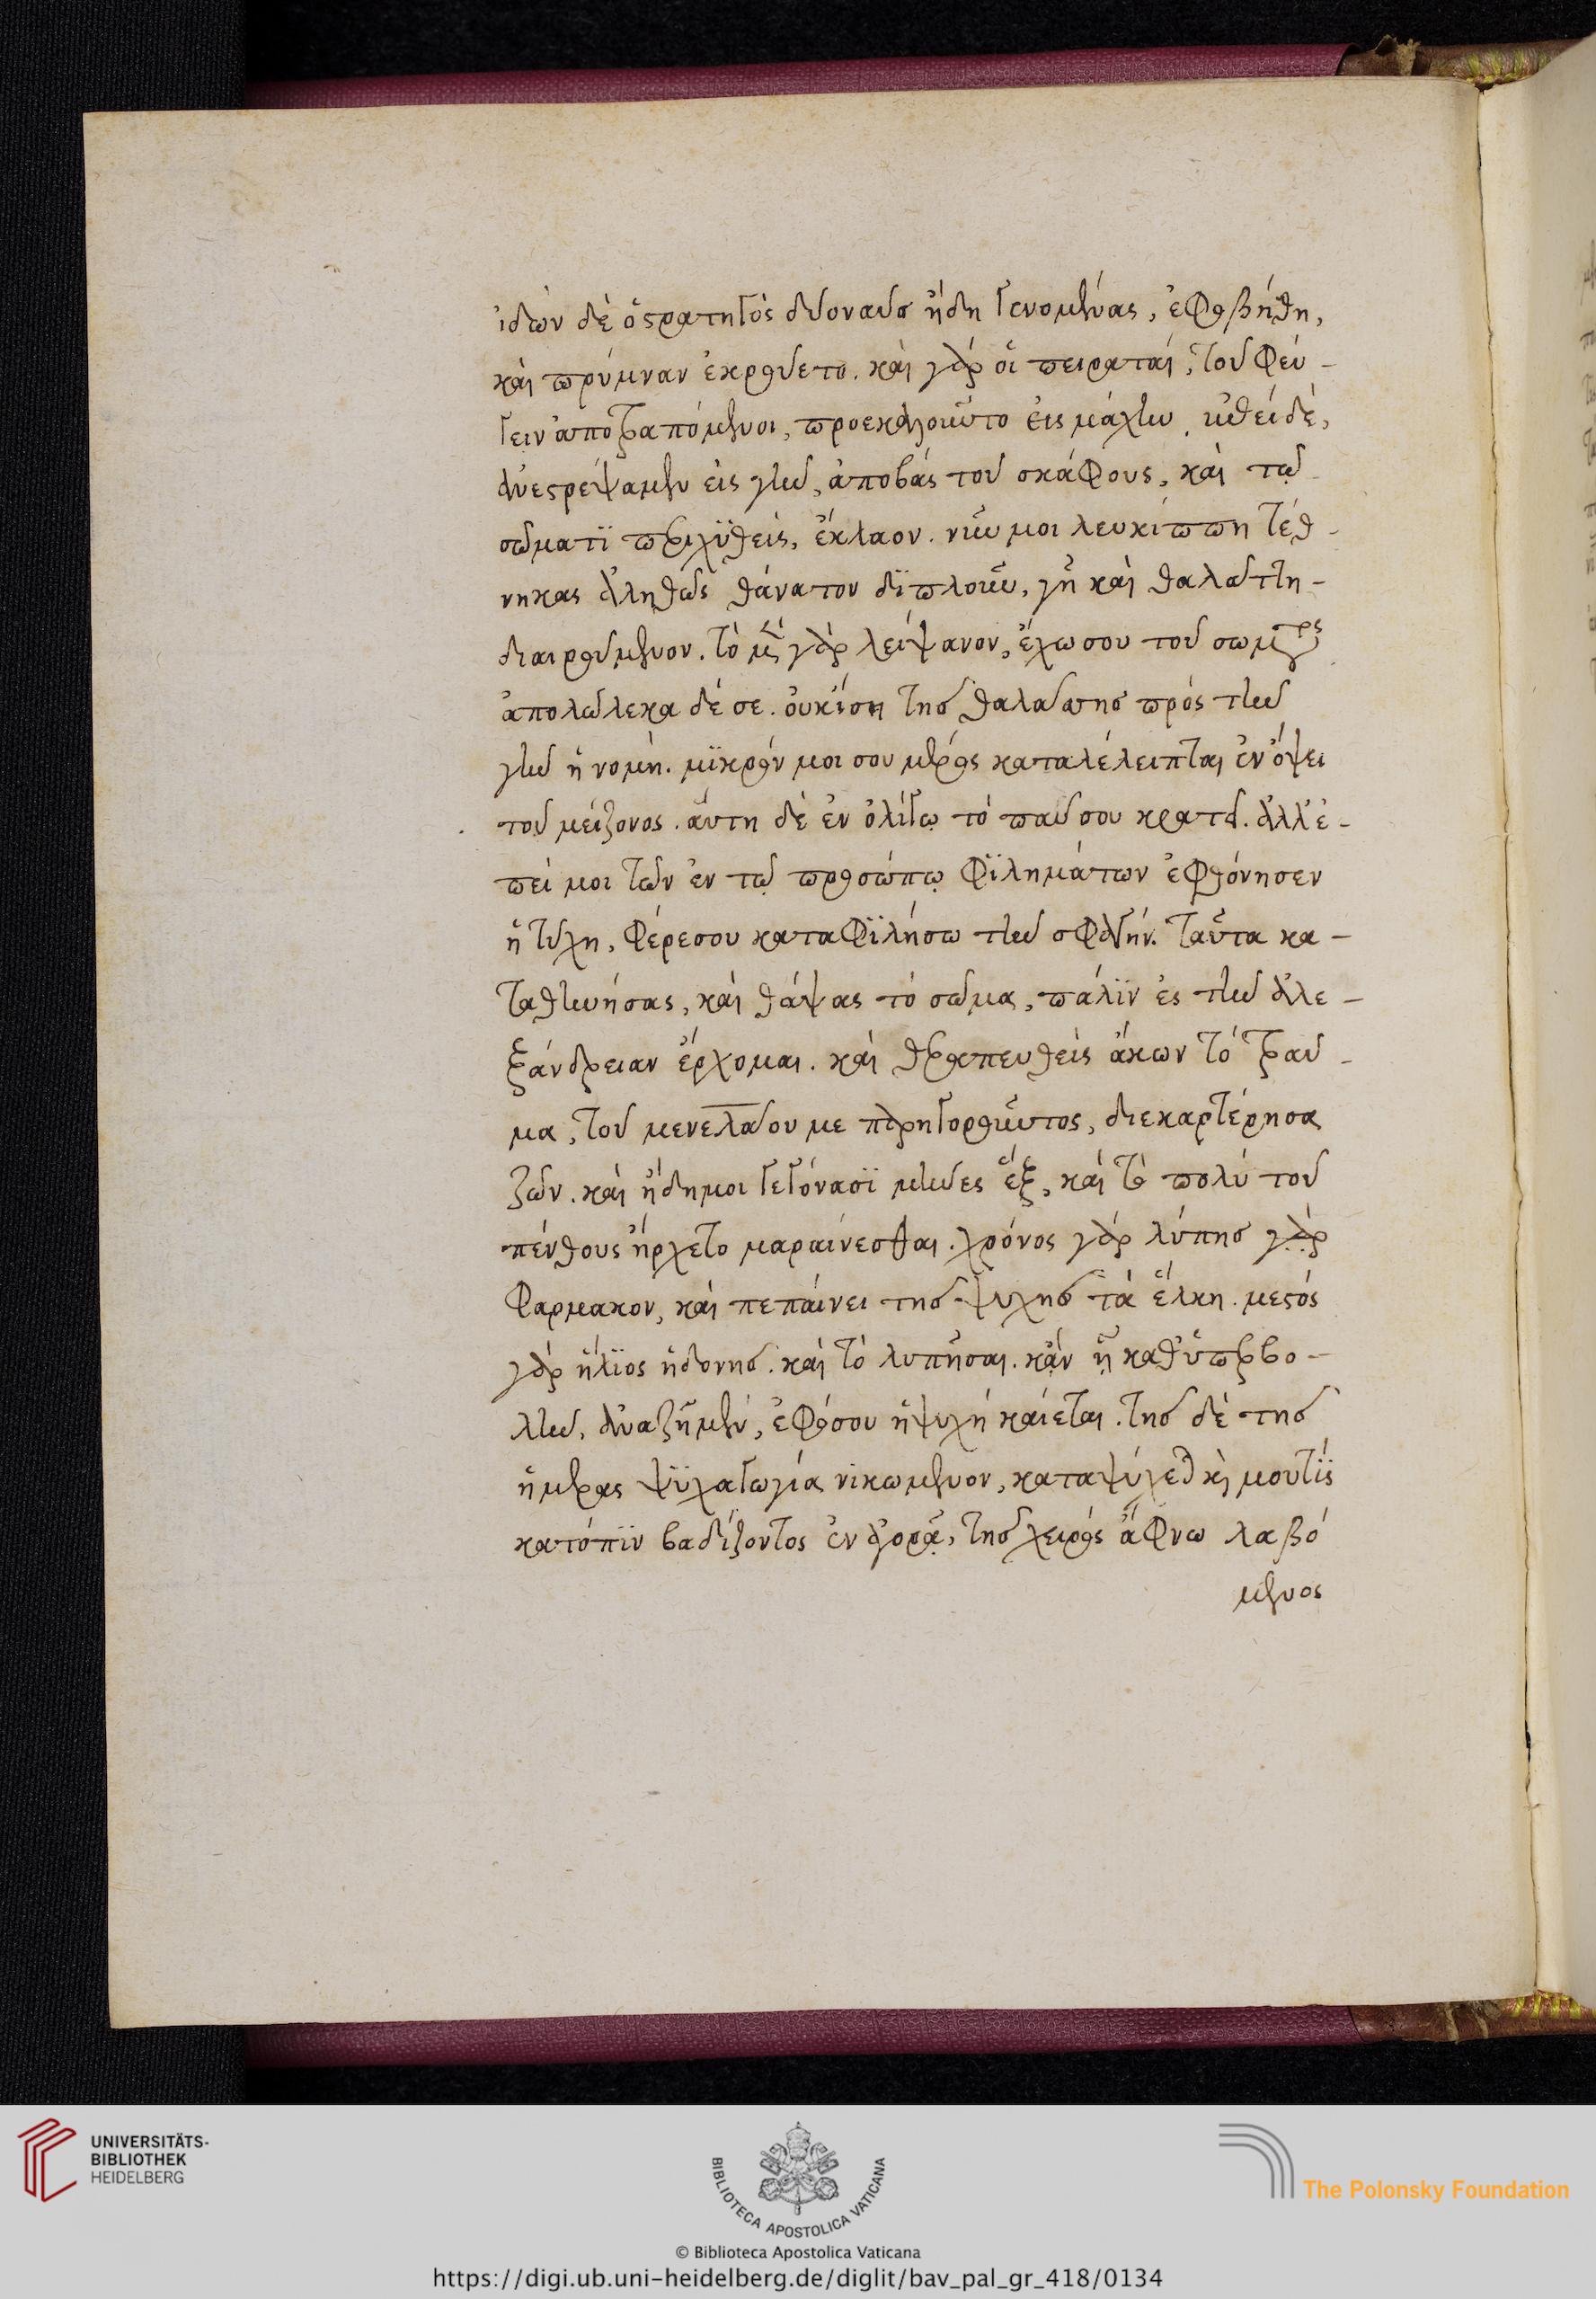 ἰδὼν δὲ ὁ στρατηγὸς δύο ναῦς ἤδη γενομένας, ἐφοβήθη,
καὶ πρύμναν ἐκρούετο. καὶ γὰρ οἱ πειραταὶ, τοῦ φεύ-
γειν ἀποτραπόμενοι, προεκαλοῦντο εἰς μάχην. ἐπεὶ δὲ,
ἀνεστρέψαμεν εἰς γῆν, ἀποβὰς τοῦ σκάφους, καὶ τῷ
σώματϊ περιχϋθεὶς, ἔκλαον. νῦν μοι λευκίππη τέθ-
νηκας ἀληθῶς θάνατον δϊπλοῦν, γῆ καὶ θαλάττη-
διαιρούμενον. τὸ μὲν γὰρ λείψανον, ἔχω σου τοῦ σώματος
ἀπολώλεκα δέ σε. οὐκ ἴση τῆς θαλάττης πρὸς τὴν
γῆν ἡ νομή. μϊκρόν μοι σου μέρος καταλέλειπται ἐν ὄψει
τοῦ μείζονος. αὕτη δὲ ἐν ὀλίγῳ τὸ πᾶν σου κρατεῖ. ἀλλ' ἐ-
πεί μοι τῶν ἐν τῷ προσώπῳ φϊλημάτων ἐφθόνησεν
ἡ τύχη, φέρε σου καταφϊλήσω τὴν σφαγήν. ταῦτα κα-
ταθρηνήσας, καὶ θάψας τὸ σῶμα, πάλϊν ἐς τὴν ἀλε-
ξάνδρειαν ἔρχομαι. καὶ θεραπευθεὶς ἄκων τὸ τραῦ-
μα, τοῦ μενελάου με παρηγοροῦντος, διεκαρτέρησα
ζῶν. καὶ ἤδη μοι γεγόνασϊ μῆνες ἕξ, καὶ τὸ πολὺ τοῦ
πένθους ἤρχετο μαραίνεσθαι. χρόνος γὰρ λύπης γὰρ
φαρμακον, καὶ πεπαίνει τῆς ψυχῆς τὰ ἕλκη. μεστὸς
γὰρ ἥλϊος ἡδονῆς. καὶ τὸ λυπῆσαν. κᾂν ᾖ καθ' ὑπερβο-
λὴν, ἀναζῆ μὲν, ἐφόσον ἡ ψυχὴ καίεται. τῆς δὲ τῆς
ἡμέρας ψϋχαγωγία νικώμενον, καταψύχεται. καὶ μου τὶς
κατόπϊν βαδίζοντος ἐν ἀγορᾷ, τῆς χειρὸς ἄφνω λαβό
μενος
UNIVERSITÄTS-
BIBLIOTHEK
HEIDELBERG
BIBLIOTECA APOSTOLICA VATICANA
© Biblioteca Apostolica Vaticana
The Polonsky Foundation
https://digi.ub.uni-heidelberg.de/diglit/bav_pal_gr_418/0134